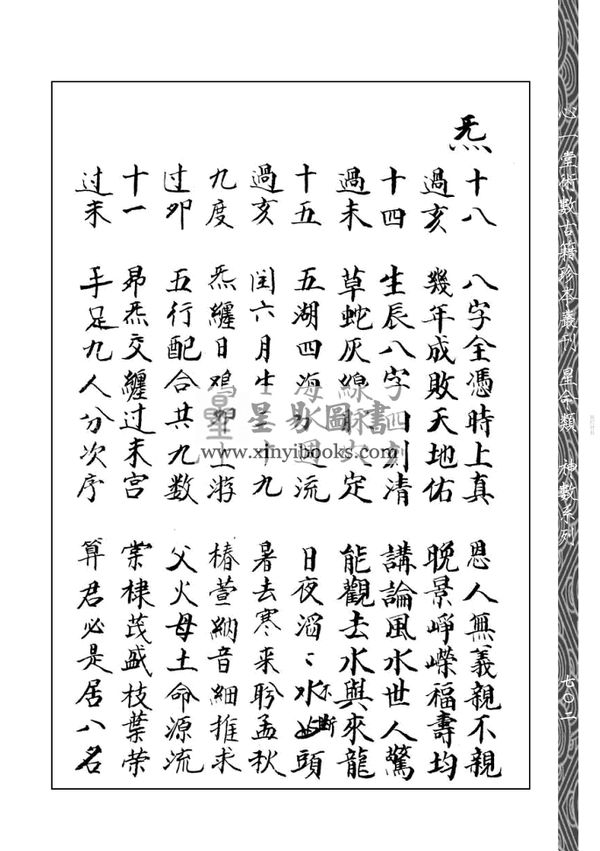 炁
十八 八字全憑時上真 恩人無義親不親
過亥 幾年成敗天地佑 晚景崢嶸福壽均
十四 生辰八字刻清 講論風水世人驚
過未 草蛇灰線定 能觀去水與來龍
十五 五湖四海流 日夜滔〻水不斷頭
過亥 閏六月生十九 暑去寒来肹孟秋
九度 炁纏日鷄游 椿萱納音細推求
过卯 五行配合共九数 父火母土命源流
十一 昴炁交纏过未宮 棠棣茂盛枝葉荣
过未 手足九人分次序 算君必是居八名
心一堂術數古籍珍本叢刊 星命類 神數系列
七〇二
星易圖書
www.xinyibooks.com